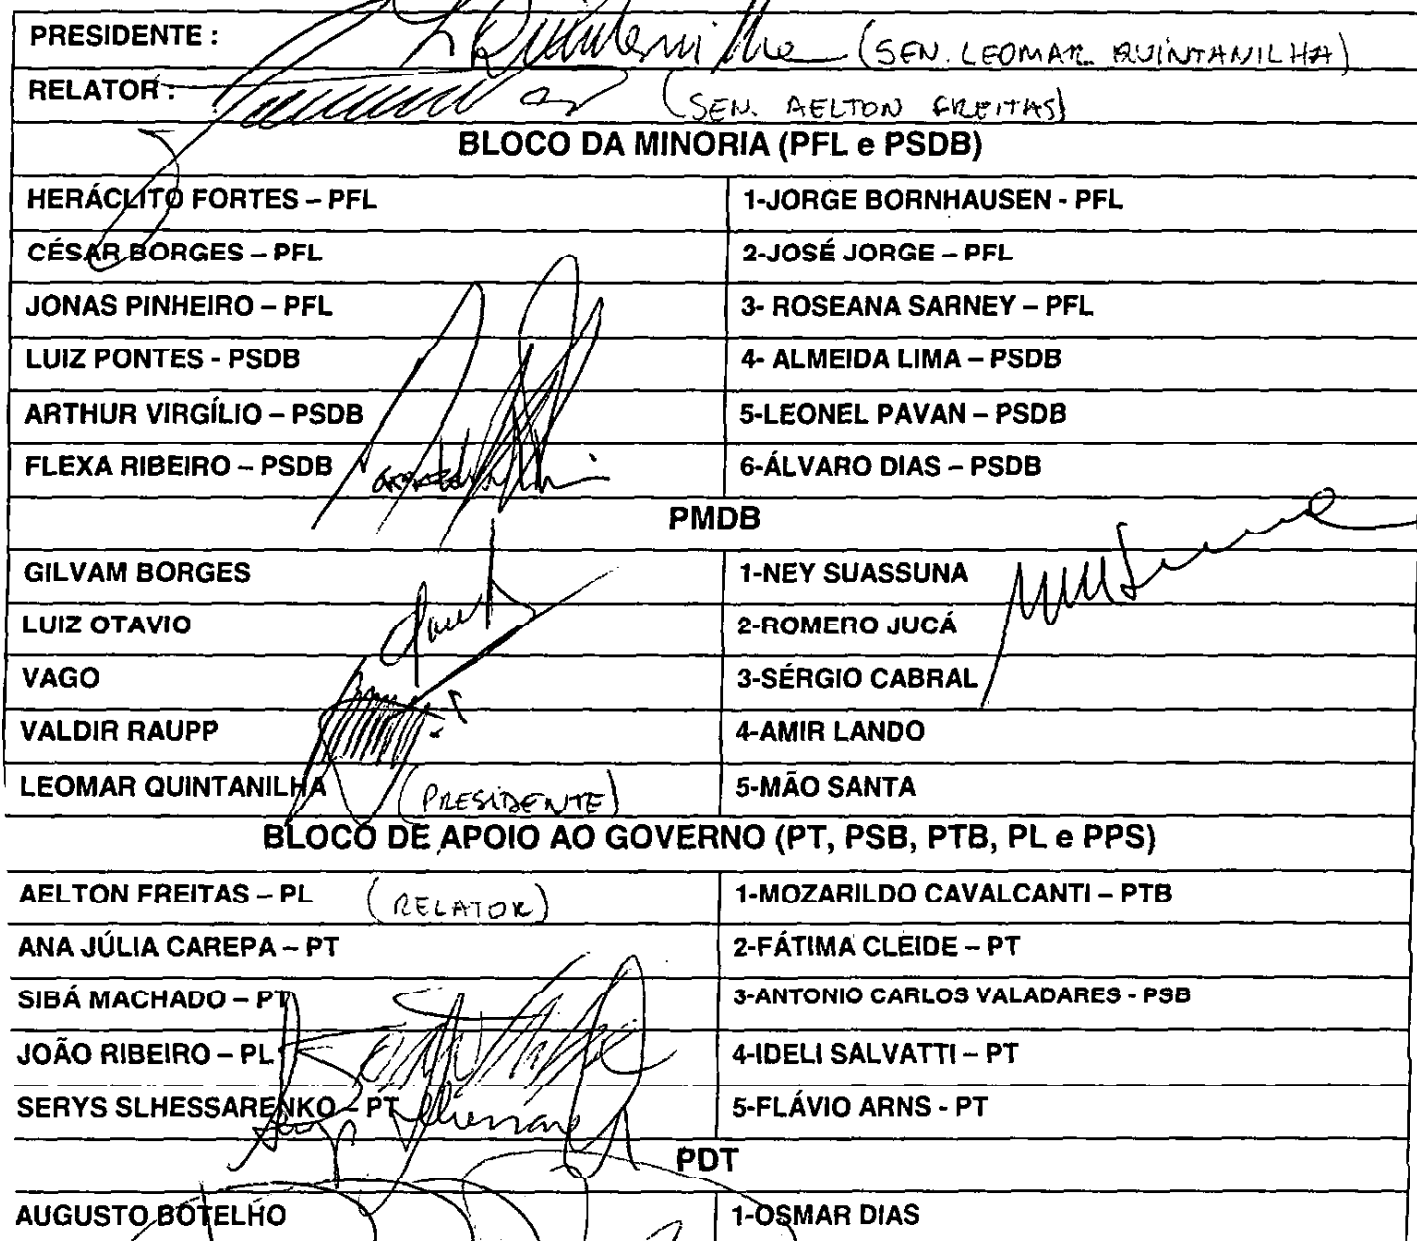 PRESIDENTE : (SEN. LEOMAR QUINTANILHA)
RELATOR : (SEN. AELTON FREITAS)
BLOCO DA MINORIA (PFL e PSDB)
HERÁCLITO FORTES – PFL 1-JORGE BORNHAUSEN - PFL
CÉSAR BORGES – PFL 2-JOSÉ JORGE – PFL
JONAS PINHEIRO – PFL 3- ROSEANA SARNEY – PFL
LUIZ PONTES - PSDB 4- ALMEIDA LIMA – PSDB
ARTHUR VIRGÍLIO – PSDB 5-LEONEL PAVAN – PSDB
FLEXA RIBEIRO – PSDB 6-ÁLVARO DIAS – PSDB
PMDB
GILVAM BORGES 1-NEY SUASSUNA
LUIZ OTAVIO 2-ROMERO JUCÁ
VAGO 3-SÉRGIO CABRAL
VALDIR RAUPP 4-AMIR LANDO
LEOMAR QUINTANILHA (PRESIDENTE) 5-MÃO SANTA
BLOCO DE APOIO AO GOVERNO (PT, PSB, PTB, PL e PPS)
AELTON FREITAS – PL (RELATOR) 1-MOZARILDO CAVALCANTI – PTB
ANA JÚLIA CAREPA – PT 2-FÁTIMA CLEIDE – PT
SIBÁ MACHADO – PT 3-ANTONIO CARLOS VALADARES - PSB
JOÃO RIBEIRO – PL 4-IDELI SALVATTI – PT
SERYS SLHESSARENKO – PT 5-FLÁVIO ARNS - PT
PDT
AUGUSTO BOTELHO 1-OSMAR DIAS